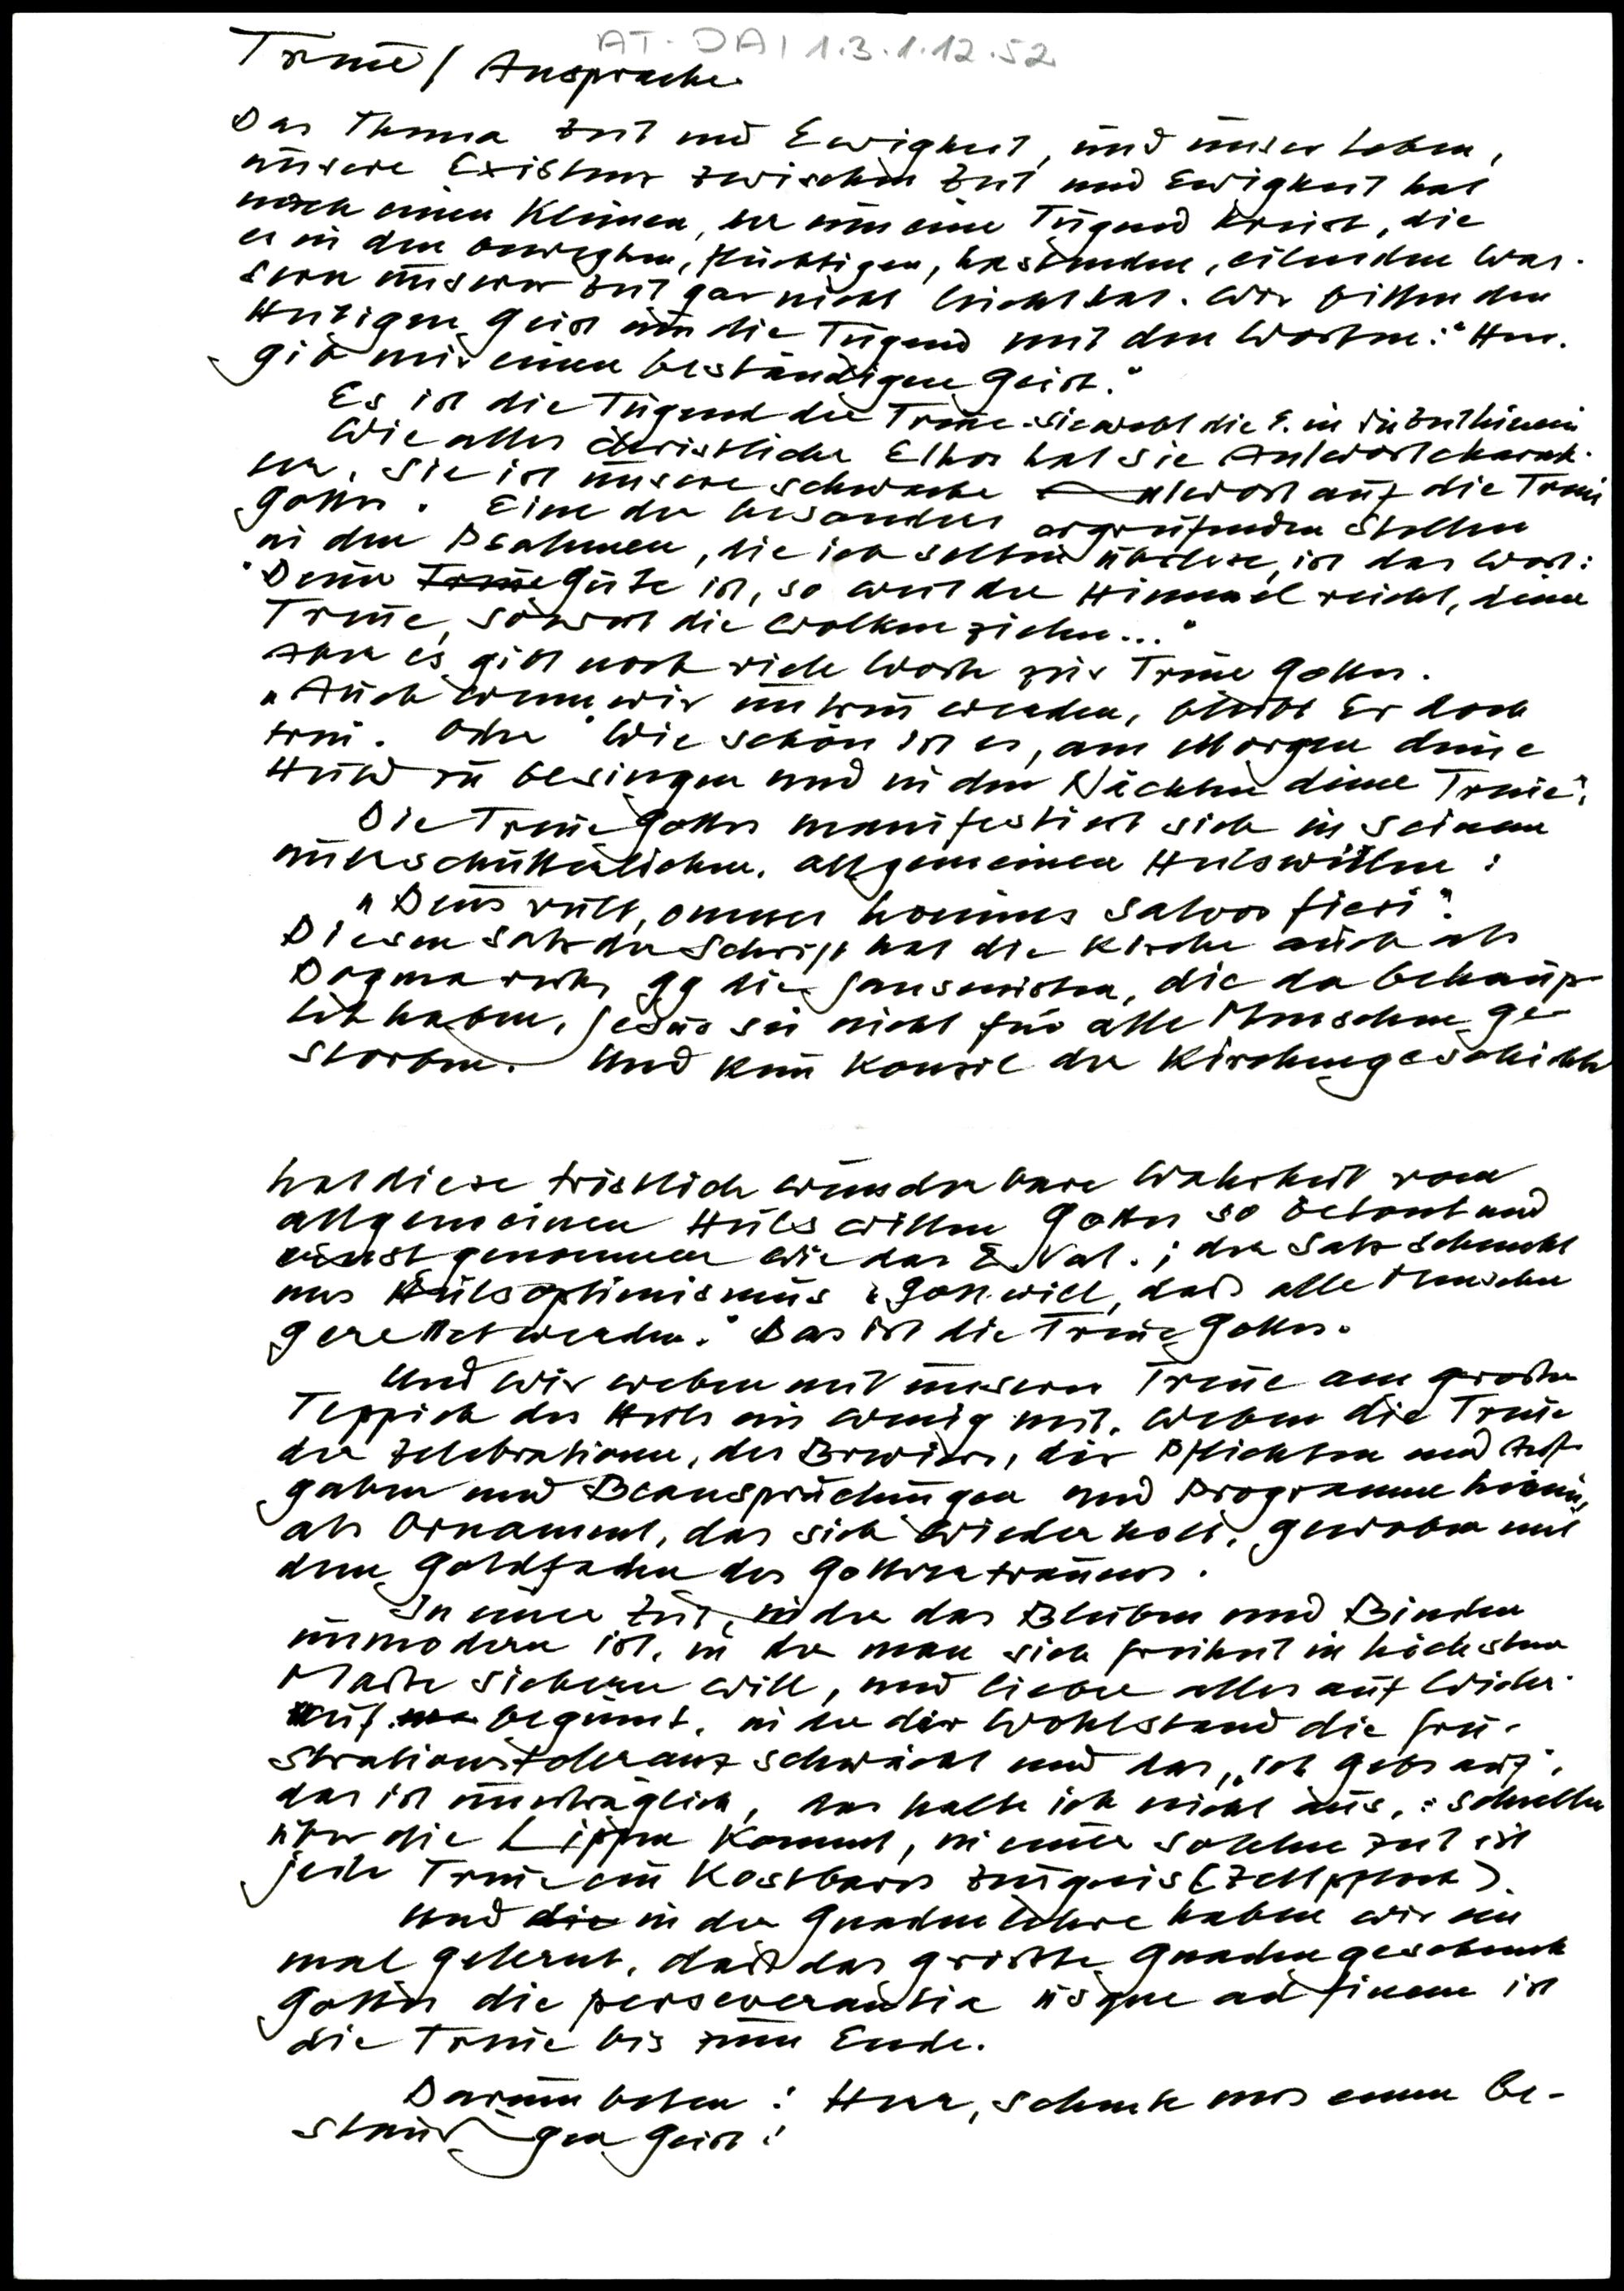 AT-DAI 1.3.1.12.52
Treue / Ansprache
Das Thema Zeit und Ewigkeit, und unser Leben,
unsere Existenz zwischen Zeit und Ewigkeit hat
noch einen Kleinen, der um eine Tugend kreist, die
es in den bewegten, flüchtigen, hastenden, eilenden Was-
sern unserer Zeit gar nicht leicht hat. Wir bitten den
Heiligen Geist um die Tugend mit den Worten: "Herr,
gib mir einen beständigen Geist."
Es ist die Tugend der Treue. Sie webt die E. in die Zeit hinein
Wie alles christliche Ethos hat sie Antwortcharak-
ter. Sie ist unsere schwache Antwort auf die Treue
Gottes. Eine der besonders ergreifenden Stellen
in den Psalmen, die ich selten überlese, ist das Wort:
"Deine Treue Güte ist, so weit der Himmel reicht, deine
Treue, soweit die Wolken ziehn..."
Aber es gibt noch viele Worte zur Treue Gottes.
"Auch wenn wir untreu werden, bleibt Er doch
treu. Oder "Wie schön ist es, am Morgen deine
Huld zu besingen und in den Nächten deine Treue".
Die Treue Gottes manifestiert sich in seinem
unerschütterlichen, allgemeinen Heilswillen:
"Deus vult, omnes homines salvos fieri".
Diesen Satz der Schrift hat die Kirche auch als
Dogma gg die Jansenisten, die da behaup-
tet haben, Jesus sei nicht für alle Menschen ge-
storben. Und kein Konzil der Kirchengeschichte
hat diese tröstlich wunderbare Wahrheit vom
allgemeinen Heilswillen Gottes so betont und
ernst genommen wie das II. Vat.; der Satz schenkt
uns Heilsoptimismus "Gott will, daß alle Menschen
gerettet werden." Das ist die Treue Gottes.
Und wir weben mit unserer Treue am großen
Teppich des Heils ein wenig mit. Weben die Treue
der Zelebrationen, des Breviers, der Pflichten und Auf-
gaben und Beanspruchungen und Programme hinein,
als Ornament, das sich wiederholt, gewoben mit
dem Goldfaden des Gottvertrauens.
In einer Zeit, in der das Bleiben und Binden
unmodern ist, in der man sich Freiheit in höchstem
Maße sichern will, und lieber alles auf Wider-
ruf beginnt, in der der Wohlstand die Fru-
strationstoleranz schwächt und das "ich gebs auf",
das ist unerträglich, das halte ich nicht aus, schneller
über die Lippen kommt, in einer solchen Zeit ist
jede Treue ein kostbares Zeugnis (Zeltpflock).
Und die in der Gnadenlehre haben wir ein
mal gelernt, daß das größte Gnadengeschenk
Gottes die perseverantia usque ad finem ist
die Treue bis zum Ende.
Darum beten: Herr, schenk uns einen be-
ständigen Geist!